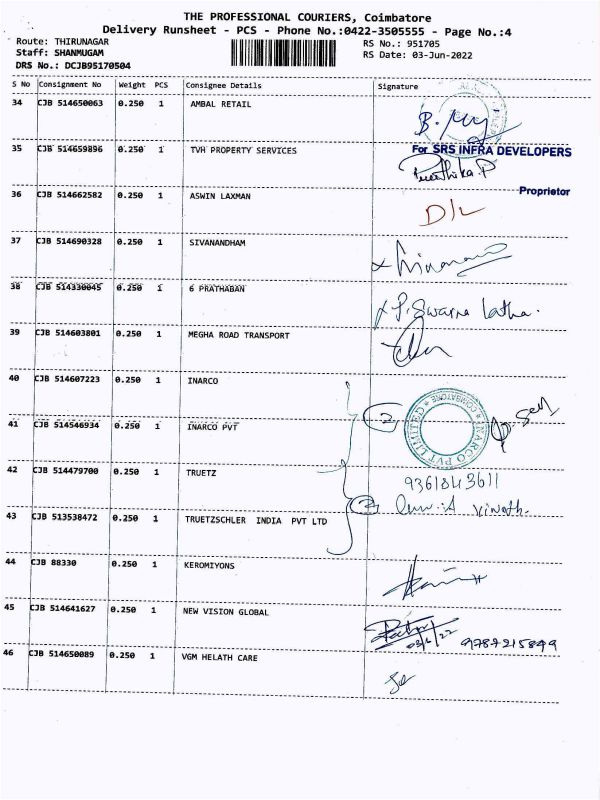 THE PROFESSIONAL COURIERS, Coimbatore
Delivery Runsheet - PCS - Phone No.:0422-3505555 - Page No.:4
Route: THIRUNAGAR
Staff: SHANMUGAM
DRS No.: DCJB95170504
RS No.: 951705
RS Date: 03-Jun-2022
S No Consignment No Weight PCS Consignee Details Signature
34 CJB 514650063 0.250 1 AMBAL RETAIL
35 CJB 514659896 0.250 1 TVH PROPERTY SERVICES
For SRS INFRA DEVELOPERS
Proprietor
36 CJB 514662582 0.250 1 ASWIN LAXMAN D/L
37 CJB 514690328 0.250 1 SIVANANDHAM
38 CJB 514330045 0.250 1 6 PRATHABAN
P. Swarna latha.
39 CJB 514603801 0.250 1 MEGHA ROAD TRANSPORT
40 CJB 514607223 0.250 1 INARCO
2
INARCO PVT LIMITED
COIMBATORE
41 CJB 514546934 0.250 1 INARCO PVT
42 CJB 514479700 0.250 1 TRUETZ
9361843611
43 CJB 513538472 0.250 1 TRUETZSCHLER INDIA PVT LTD
2
44 CJB 88330 0.250 1 KEROMIYONS
45 CJB 514641627 0.250 1 NEW VISION GLOBAL
03/6/22 9787215899
46 CJB 514650089 0.250 1 VGM HELATH CARE